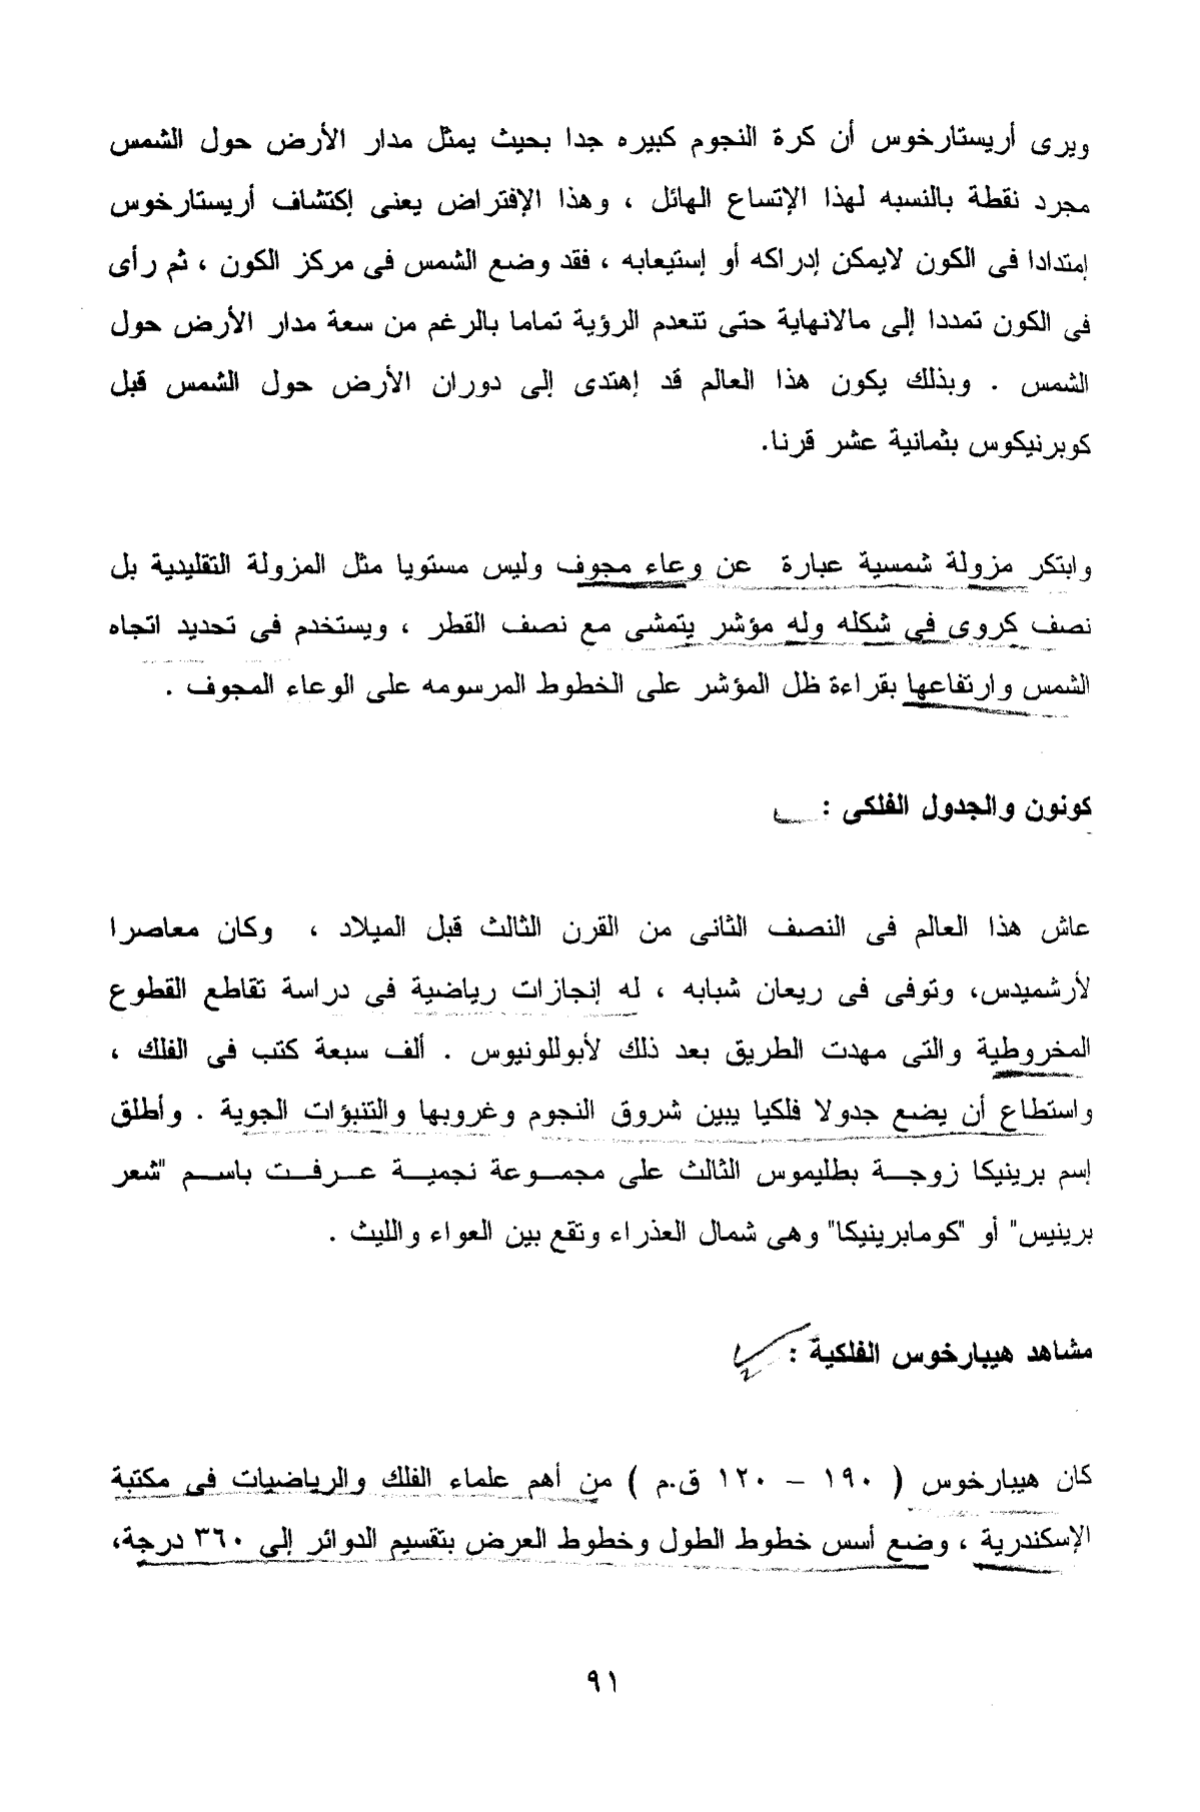 ويرى أريستارخوس أن كرة النجوم كبيره جدا بحيث يمثل مدار الأرض حول الشمس
مجرد نقطة بالنسبه لهذا الإتساع الهائل ، وهذا الإفتراض يعنى إكتشاف أريستارخوس
إمتدادا فى الكون لايمكن إدراكه أو إستيعابه ، فقد وضع الشمس فى مركز الكون ، ثم رأى
فى الكون تمددا إلى مالانهاية حتى تنعدم الرؤية تماما بالرغم من سعة مدار الأرض حول
الشمس . وبذلك يكون هذا العالم قد إهتدى إلى دوران الأرض حول الشمس قبل
كوبرنيكوس بثمانية عشر قرنا.
وابتكر مزولة شمسية عبارة عن وعاء مجوف وليس مستويا مثل المزولة التقليدية بل
نصف كروى فى شكله وله مؤشر يتمشى مع نصف القطر ، ويستخدم فى تحديد اتجاه
الشمس وارتفاعها بقراءة ظل المؤشر على الخطوط المرسومه على الوعاء المجوف .
كونون والجدول الفلكى :
عاش هذا العالم فى النصف الثانى من القرن الثالث قبل الميلاد ، وكان معاصرا
لأرشميدس، وتوفى فى ريعان شبابه ، له إنجازات رياضية فى دراسة تقاطع القطوع
المخروطية والتى مهدت الطريق بعد ذلك لأبوللونيوس . ألف سبعة كتب فى الفلك ،
واستطاع أن يضع جدولا فلكيا يبين شروق النجوم وغروبها والتنبؤات الجوية . وأطلق
إسم برينيكا زوجـــة بطليموس الثالث على مجمـــوعة نجميـــة عـــرفـــت باســـم "شعر
برينيس" أو "كومابرينيكا" وهى شمال العذراء وتقع بين العواء والليث .
مشاهد هيبارخوس الفلكية :
كان هيبارخوس ( ١٩٠ – ١٢٠ ق.م ) من أهم علماء الفلك والرياضيات فى مكتبة
الإسكندرية ، وضع أسس خطوط الطول وخطوط العرض بتقسيم الدوائر إلى ٣٦٠ درجة،
٩١